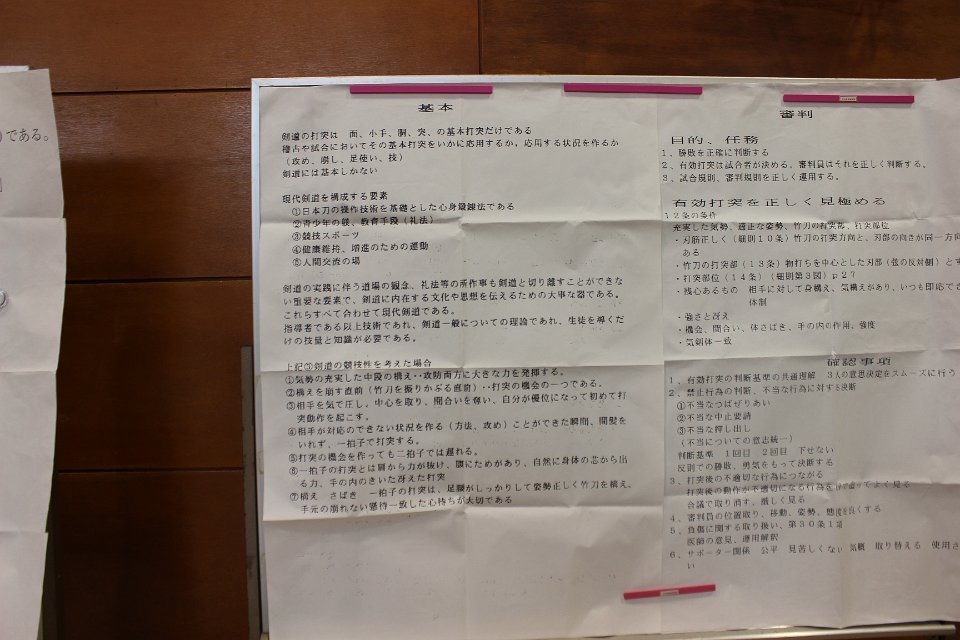 である。
基本
剣道の打突は　面、小手、胴、突、の基本打突だけである
稽古や試合においてその基本打突をいかに応用するか、応用する状況を作るか
（攻め、崩し、足使い、技）
剣道には基本しかない
現代剣道を構成する要素
①日本刀の操作技術を基礎とした心身鍛錬法である
②青少年の躾、教育手段（礼法）
③競技スポーツ
④健康維持、増進のための運動
⑤人間交流の場
剣道の実践に伴う道場の観念、礼法等の所作事も剣道と切り離すことができな
い重要な要素で、剣道に内在する文化や思想を伝えるための大事な器である。
これらすべて合わせて現代剣道である。
指導者である以上技術であれ、剣道一般についての理論であれ、生徒を導くだ
けの技量と知識が必要である。
上記③剣道の競技性を考えた場合
①気勢の充実した中段の構え・・攻防両方に大きな力を発揮する。
②構えを崩す直前（竹刀を振りかぶる直前）・・打突の機会の一つである。
③相手を気で圧し、中心を取り、間合いを奪い、自分が優位になって初めて打
突動作を起こす。
④相手が対応のできない状況を作る（方法、攻め）ことができた瞬間、間髪を
いれず、一拍子で打突する。
⑤打突の機会を作っても二拍子では遅れる。
⑥一拍子の打突とは肩から力が抜け、腰にためがあり、自然に身体の芯から出
る力、手の内のきいた冴えた打突
⑦構え　さばき　一拍子の打突は、足腰がしっかりして姿勢正しく竹刀を構え、
手元の崩れない懸待一致した心持ちが大切である
審判
目的、任務
1、勝敗を正確に判断する
2、有効打突は試合者が決める。審判員はそれを正しく判断する。
3、試合規則、審判規則を正しく運用する。
有効打突を正しく見極める
12条の条件
充実した気勢、適正な姿勢、竹刀の打突部、打突部位
・刃筋正しく（細則10条）竹刀の打突方向と、刃部の向きが同一方向
ある
・竹刀の打突部（13条）物打ちを中心とした刃部（弦の反対側）とす
・打突部位（14条）（細則第3図）p27
・残心あるもの　相手に対して身構え、気構えがあり、いつも即応でき
体制
・強さと冴え
・機会、間合い、体さばき、手の内の作用、強度
・気剣体一致
確認事項
1、有効打突の判断基準の共通理解　3人の意思決定をスムーズに行う
2、禁止行為の判断、不当な行為に対する決断
①不当なつばぜりあい
②不当な中止要請
③不当な押し出し
（不当についての意志統一）
判断基準　1回目　2回目　下せない
反則での勝敗、勇気をもって決断する
3、打突後の不適切な行為につながる
打突後の動作が不適切になる行為を よく見る
合議で取り消す、厳しく見る
4、審判員の位置取り、移動、姿勢、態度を良くする
5、負傷に関する取り扱い、第30条1項
医師の意見、運用解釈
6、サポーター関係　公平　見苦しくない　気概　取り替える　使用さ
い